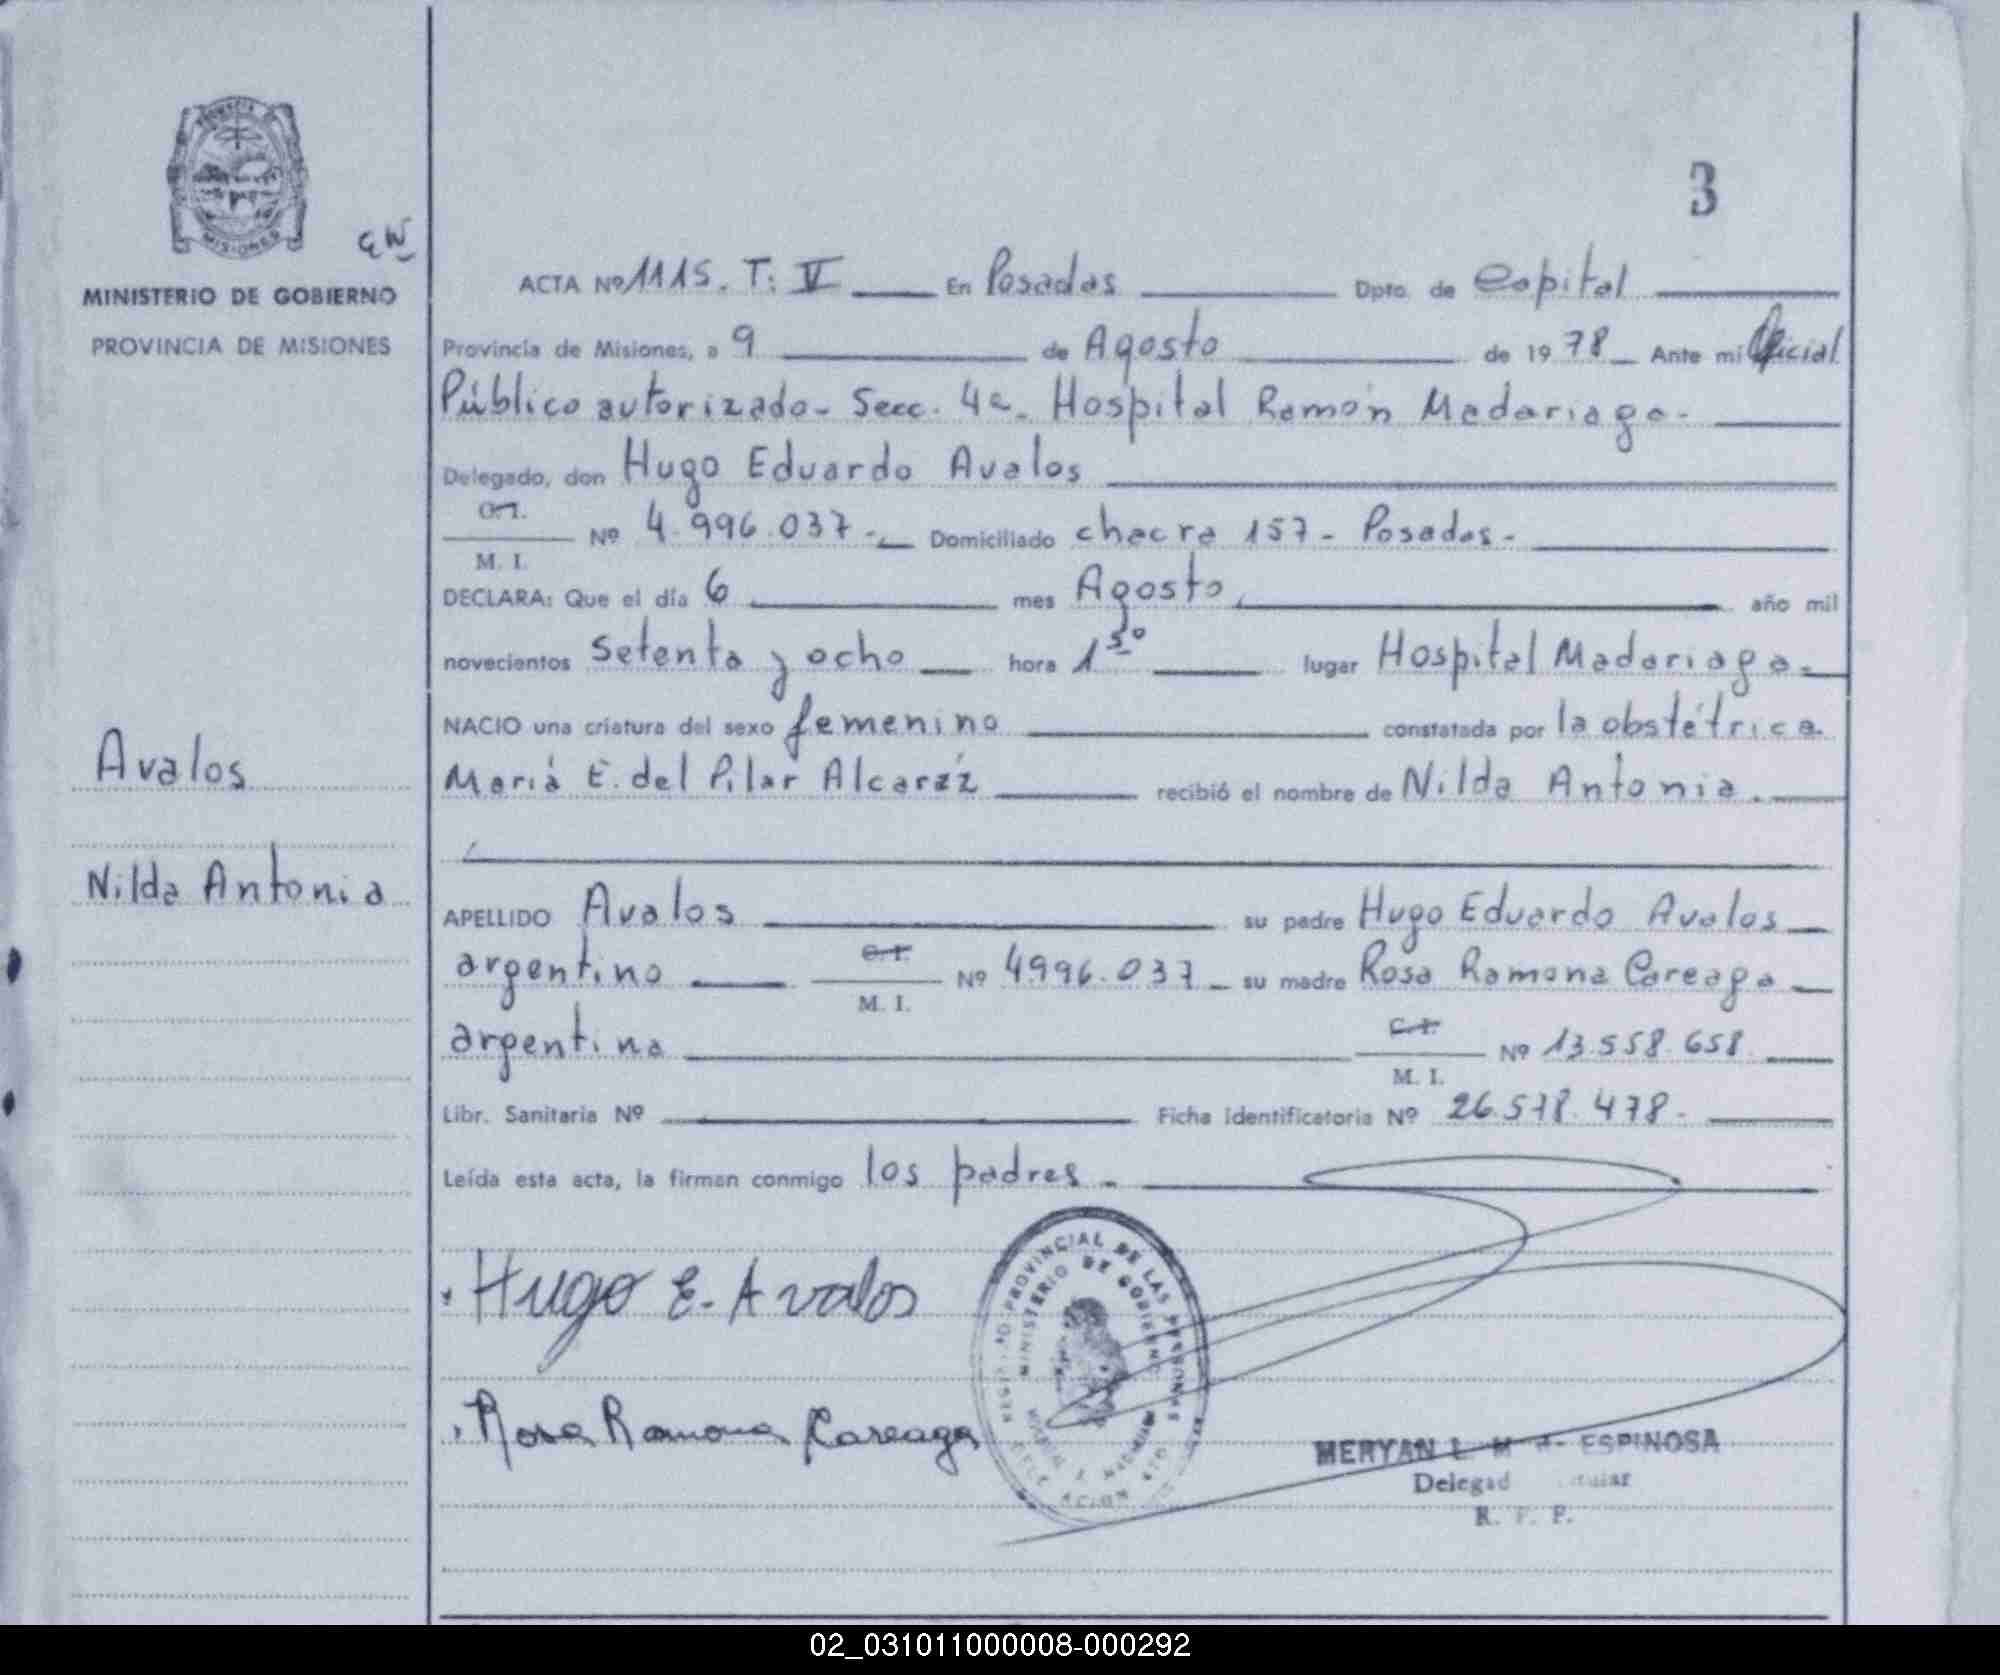 3
PROVINCIA
MISIONES
MINISTERIO DE GOBIERNO
PROVINCIA DE MISIONES
ACTA Nº 1115. T: V En Posadas Dpto. de Capital
Provincia de Misiones, a 9 de Agosto de 1978 Ante mi Oficial
Público autorizado - Secc. 4a. Hospital Ramón Madariaga -
Delegado, don Hugo Eduardo Avalos
C.I.
M. I. Nº 4.996.037 - Domiciliado chacra 157 - Posadas -
DECLARA: Que el día 6 mes Agosto año mil
novecientos setenta y ocho hora 1 5º lugar Hospital Madariaga -
NACIO una criatura del sexo femenino constatada por la obstétrica
Avalos
María E. del Pilar Alcaráz recibió el nombre de Nilda Antonia.
Nilda Antonia
APELLIDO Avalos su padre Hugo Eduardo Avalos
argentino C.I. M. I. Nº 4996.037 - su madre Rosa Ramona Careaga
argentina C.I. M. I. Nº 13.558.658
Libr. Sanitaria Nº Ficha identificatoria Nº 26.578.478 -
Leída esta acta, la firman conmigo los padres -
Hugo E. Avalos
Rosa Ramona Careaga
REGISTRO PROVINCIAL DE LAS PERSONAS
MINISTERIO DE GOBIERNO
MERYAN L. ESPINOSA
R. P. P.
02_031011000008-000292